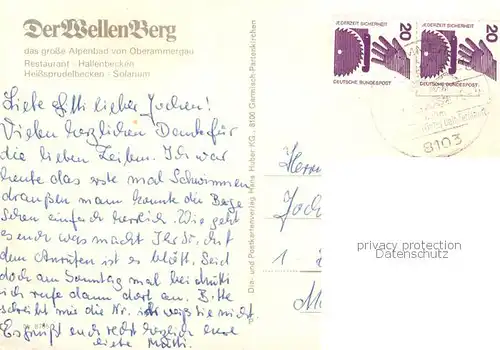 Der Wellen Berg
das große Alpenbad von Oberammergau
Restaurant · Hallenbecken
Heißsprudelbecken · Solarium
Liebe Gitti lieber Jochen!
Vielen herzlichen Dank für
die lieben Zeilen. Ich war
heute das erste mal Schwimmen
draußen man konnte die Berge
sehen einfach herrlich. Wie geht
es euch was macht Ihr so. Mit
dem Anrufen ist es blöd. Seid
doch am Sonntag mal bei
ich rufe dann dort an. Bitte
schreibt mir die Nr. ich weiß sie nicht.
Es grüßt euch recht herzlich eure
liebe Mutti.
Dia- und Postkartenverlag Hans Huber KG, 8100 Garmisch-Partenkirchen
JEDERZEIT SICHERHEIT
20
DEUTSCHE BUNDESPOST
JEDERZEIT SICHERHEIT
20
DEUTSCHE BUNDESPOST
8103
Herrn
Joch
1
privacy protection
Datenschutz